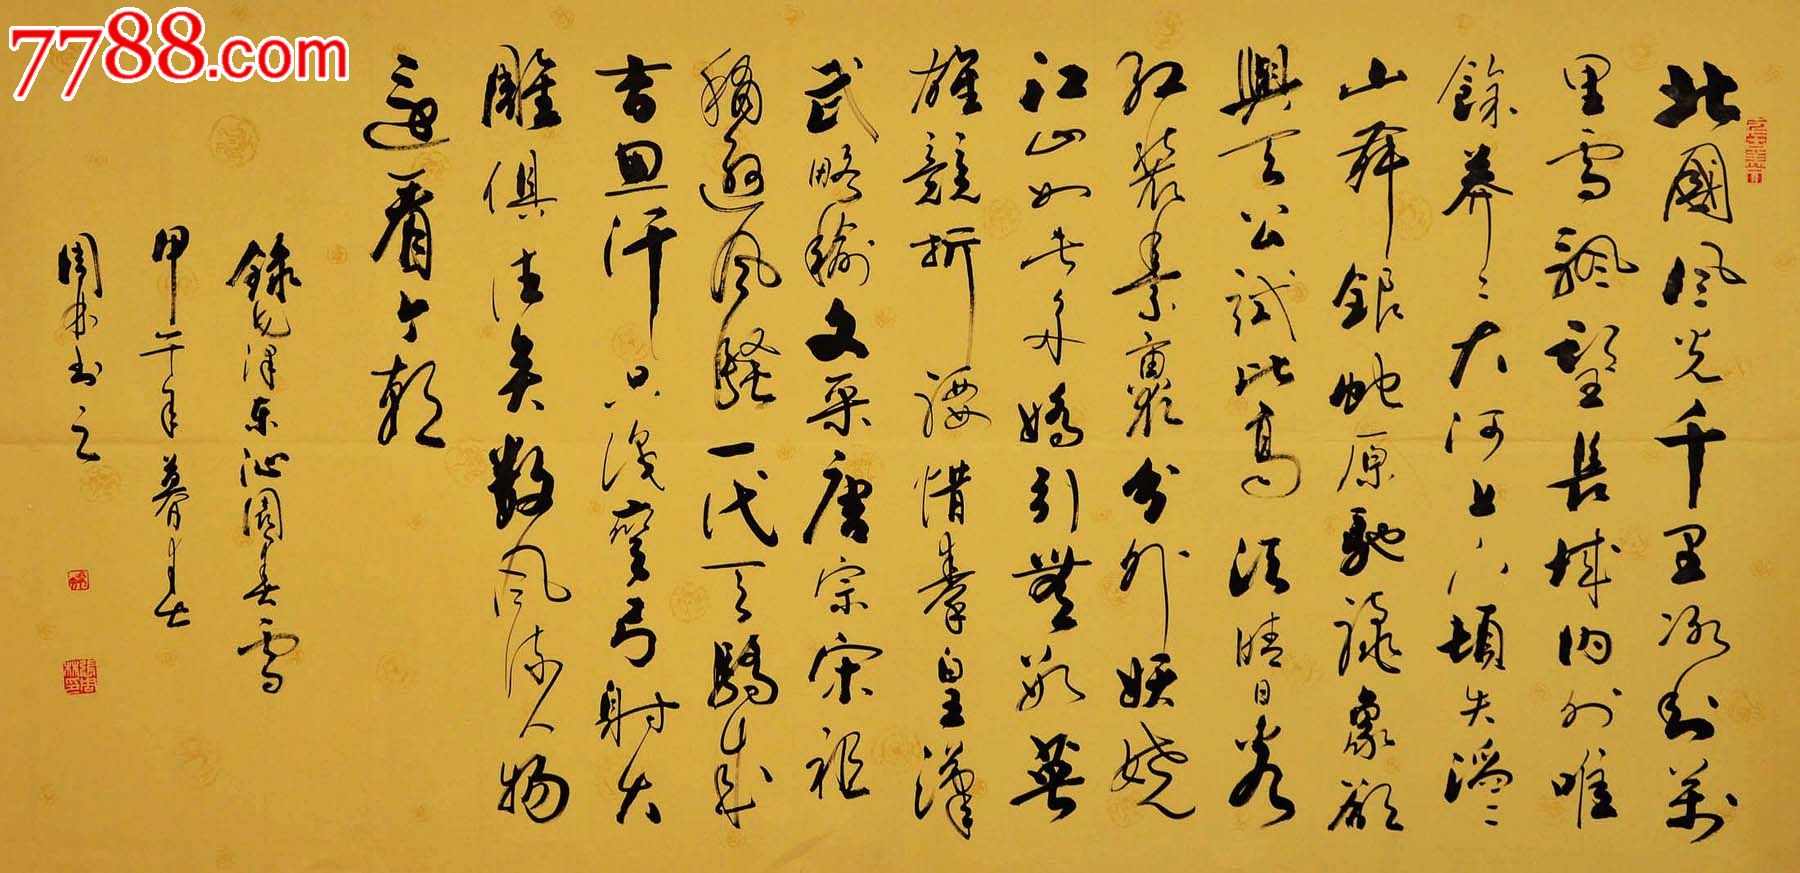 7788.com
北國風光千里冰封萬
里雪飄望長城內外唯
餘莽〻大河上下頓失滔〻
山舞銀蛇原馳蠟象欲
與天公試比高須晴日看
紅裝素裹分外妖嬈
江山如此多嬌引無數英
雄競折腰惜秦皇漢
武略輸文采唐宗宋祖
稍遜風騷一代天驕成
吉思汗只識彎弓射大
雕俱往矣數風流人物
還看今朝
錄毛澤東沁園春雪
甲午年暮春
周林書之